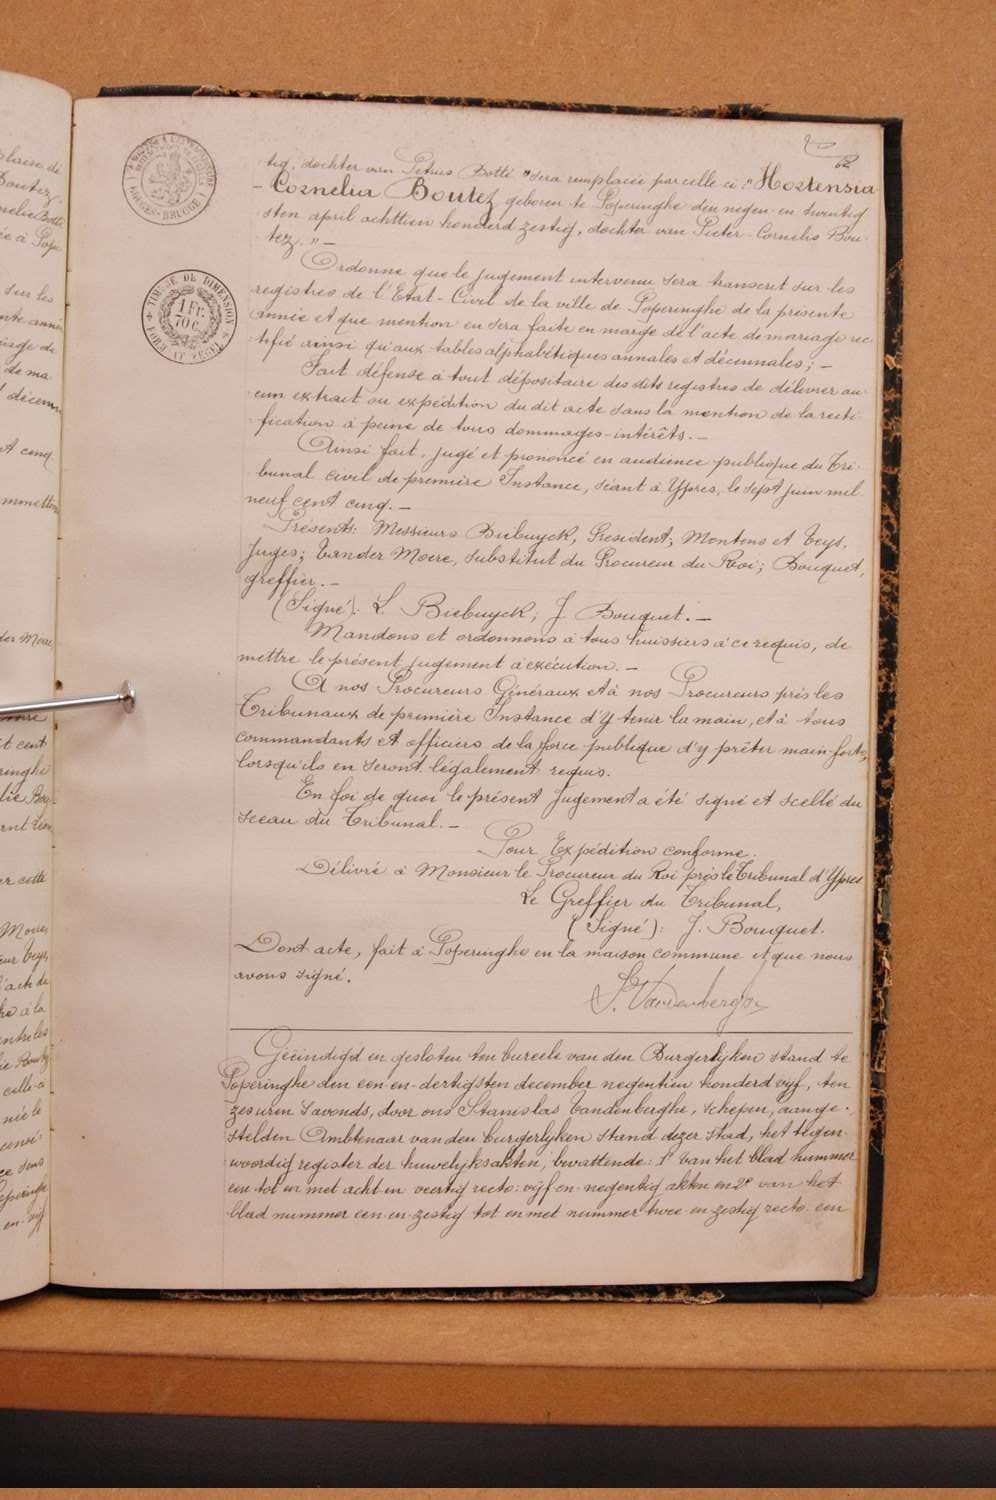 62
tig, dochter van Petrus Botté "sera remplacée par celle-ci: "Hortensia
- Cornelia Boutez geboren te Poperinghe den negen-en-twentig
sten april achttien honderd zestig, dochter van Pieter-Cornelis Bou-
tez." -
Ordonne que le jugement intervenu sera transcrit sur les
registres de l'Etat-Civil de la ville de Poperinghe de la présente
année et que mention en sera faite en marge de l'acte de mariage rec
tifié ainsi qu'aux tables alphabétiques annales et décennales; -
Fait défense à tout dépositaire des dits registres de délivrer au-
cun extrait ou expédition du dit acte sans la mention de la recti-
fication à peine de tous dommages-intérêts. -
Ainsi fait, jugé et prononcé en audience publique du Tri-
bunal civil de première Instance, séant à Ypres, le sept juin mil
neuf cent cinq. -
Présents: Messieurs Biebuyck, Président, Montens et Teys,
Juges; Vander Moere, substitut du Procureur du Roi; Bouquet,
greffier. -
(Signé): L. Biebuyck; J. Bouquet. -
Mandons et ordonnons à tous huissiers à ce requis, de
mettre le présent jugement à exécution. -
A nos Procureurs Généraux et à nos Procureurs près les
Tribunaux de première Instance d'y tenir la main, et à tous
commandants et officiers de la force publique d'y prêter main-forte,
lorsqu'ils en seront légalement requis.
En foi de quoi le présent jugement a été signé et scellé du
sceau du Tribunal. -
Pour Expédition conforme:
Délivré à Monsieur le Procureur du Roi près le Tribunal d'Ypres
Le Greffier du Tribunal,
(Signé): J. Bouquet.
Dont acte, fait à Poperinghe en la maison commune et que nous
avons signé.
S. Vandenberghe
Geëindigd en gesloten ten bureele van den Burgerlyken stand te
Poperinghe den een-en-dertigsten december negentien honderd vyf, ten
zes uren s'avonds, door ons Stanislas Vandenberghe, schepen, aange-
stelden Ambtenaar van den burgerlyken stand dezer stad, het tegen-
woordig register der huwelyksakten, bevattende: 1° van het blad nummer
een tot en met acht en veertig recto: vyf en negentig akten en 2° van het
blad nummer een-en-zestig tot en met nummer twee en zestig recto een
TIMBRE DE DIMENSION
1 Fr.
70 c.
FORM. AU ZEGEL